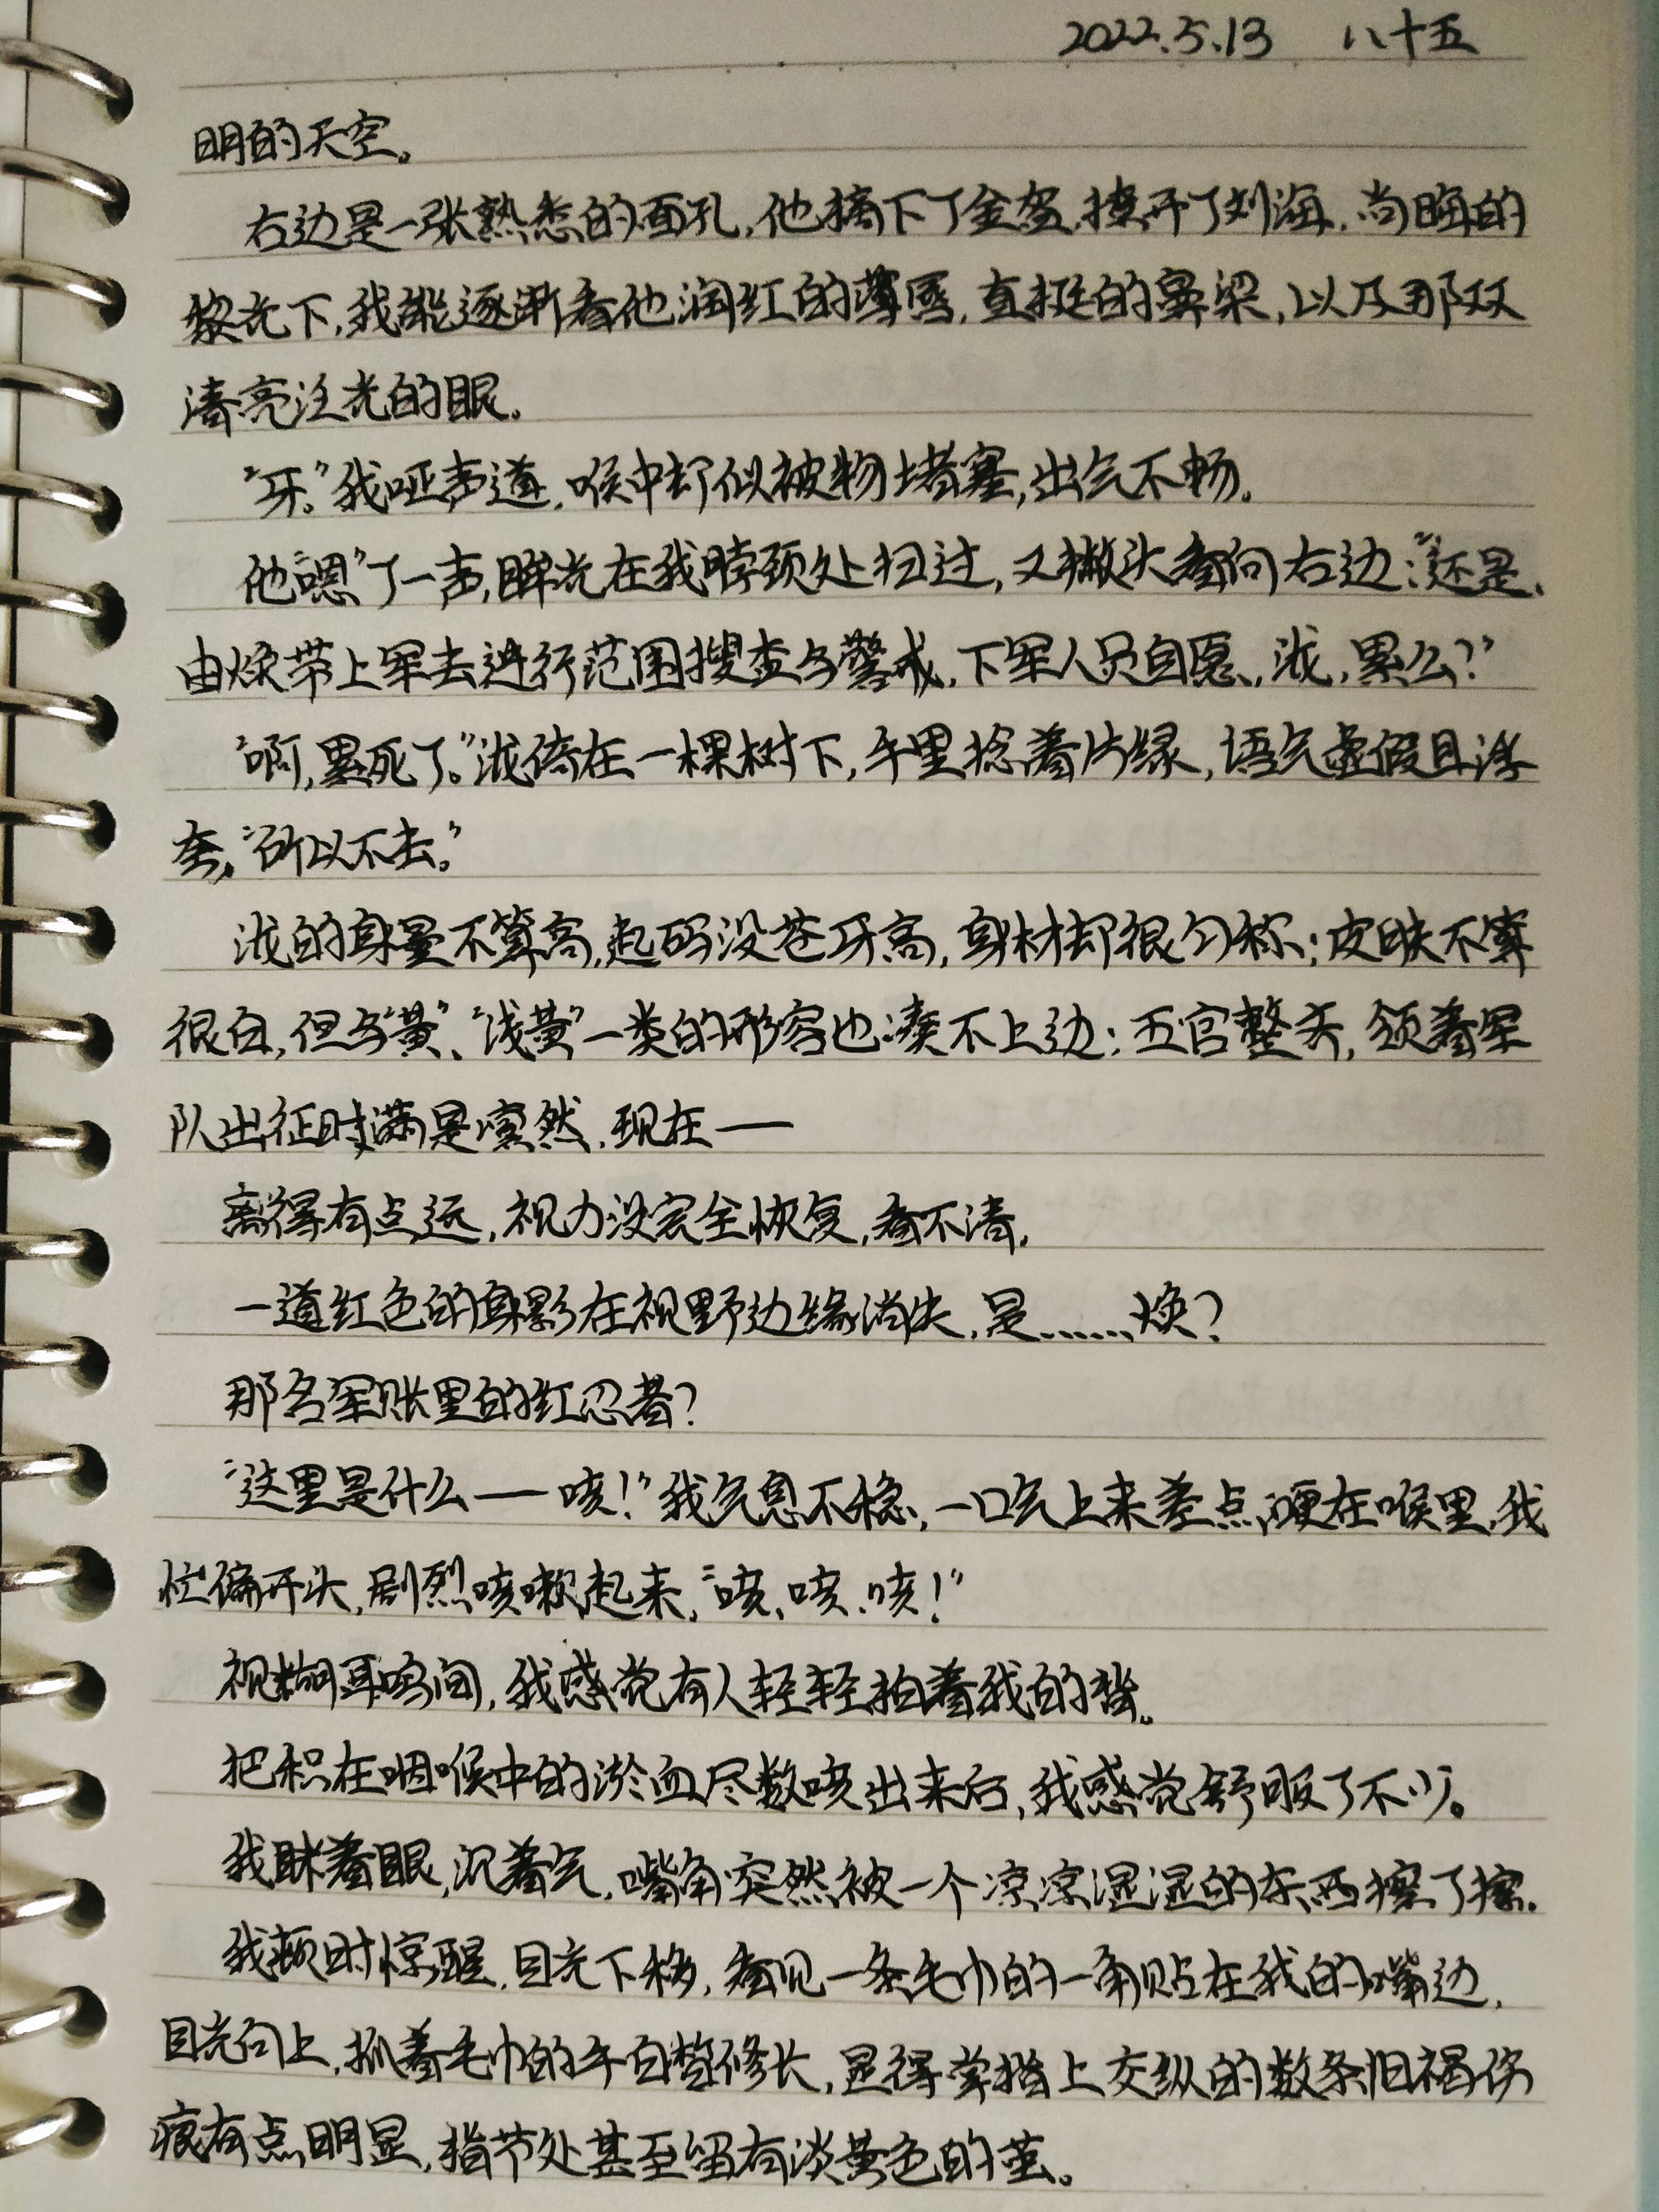 2022.5.13 八十五
明的天空。
右边是一张熟悉的面孔,他摘下了金盔,撩开了刘海,尚晦的
黎光下,我能逐渐看他润红的薄唇,直挺的鼻梁,以及那双
清亮泛光的眼。
“牙。”我哑声道,喉中却似被物堵塞,出气不畅。
他“嗯”了一声,眸光在我脖颈处扫过,又撇头看向右边:“还是
由焕带上军去进行范围搜查与警戒,下军人员自愿,泷,累么?”
“啊,累死了。”泷倚在一棵树下,手里捻着片绿,语气虚假且浮
夸,“所以不去。”
泷的身量不算高,起码没苍牙高,身材却很匀称;皮肤不算
很白,但与“黄”、“浅黄”一类的形容也凑不上边;五官整齐,领着军
队出征时满是凛然,现在——
离得有点远,视力没完全恢复,看不清,
一道红色的身影在视野边缘消失,是……焕?
那名军账里的红忍者?
“这里是什么——咳!”我气息不稳,一口气上来差点哽在喉里,我
忙偏开头,剧烈咳嗽起来,“咳、咳、咳!”
视糊耳鸣间,我感觉有人轻轻拍着我的背。
把积在咽喉中的淤血尽数咳出来后,我感觉舒服了不少。
我眯着眼,沉着气,嘴角突然被一个凉凉湿湿的东西擦了擦.
我顿时惊醒,目光下移,看见一条毛巾的一角贴在我的嘴边,
目光向上,抓着毛巾的手白皙修长,显得掌指上交纵的数条旧褐伤
痕有点明显,指节处甚至留有淡黄色的茧。